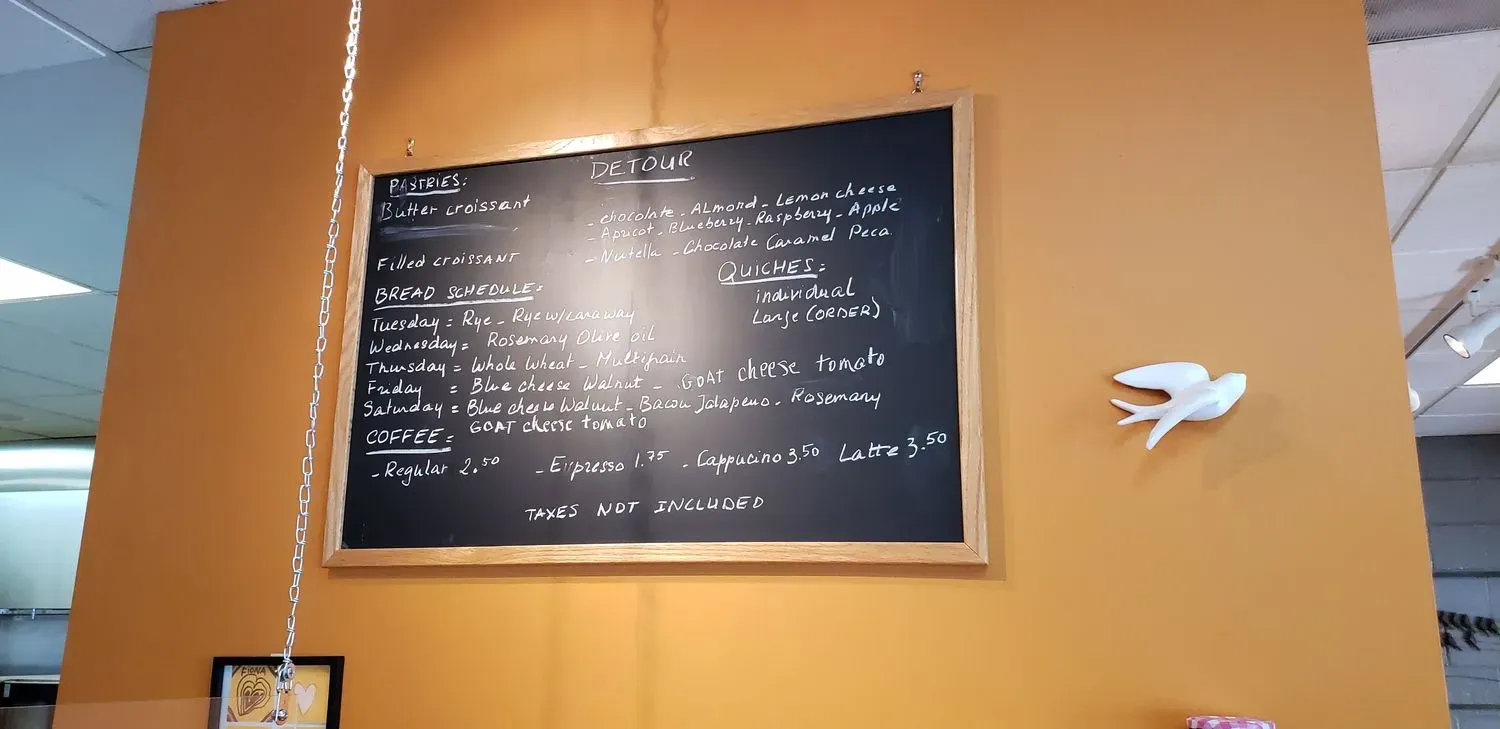 DETOUR
PASTRIES:
Butter croissant
- chocolate - ALmond - Lemon cheese
- Apricot - Blueberry - Raspberry - Apple
Filled croissant - Nutella - Chocolate Caramel Peca
QUICHES:
individual
Large (ORDER)
BREAD SCHEDULE:
Tuesday = Rye - Rye w/caraway
Wednesday = Rosemary Olive oil
Thursday = Whole Wheat - Multigrain
Friday = Blue cheese Walnut - GOAT cheese tomato
Saturday = Blue cheese Walnut - Bacon Jalapeno - Rosemary
GOAT cheese tomato
COFFEE:
- Regular 2.50 - Expresso 1.75 - Cappucino 3.50 Latte 3.50
TAXES NOT INCLUDED
FIONA